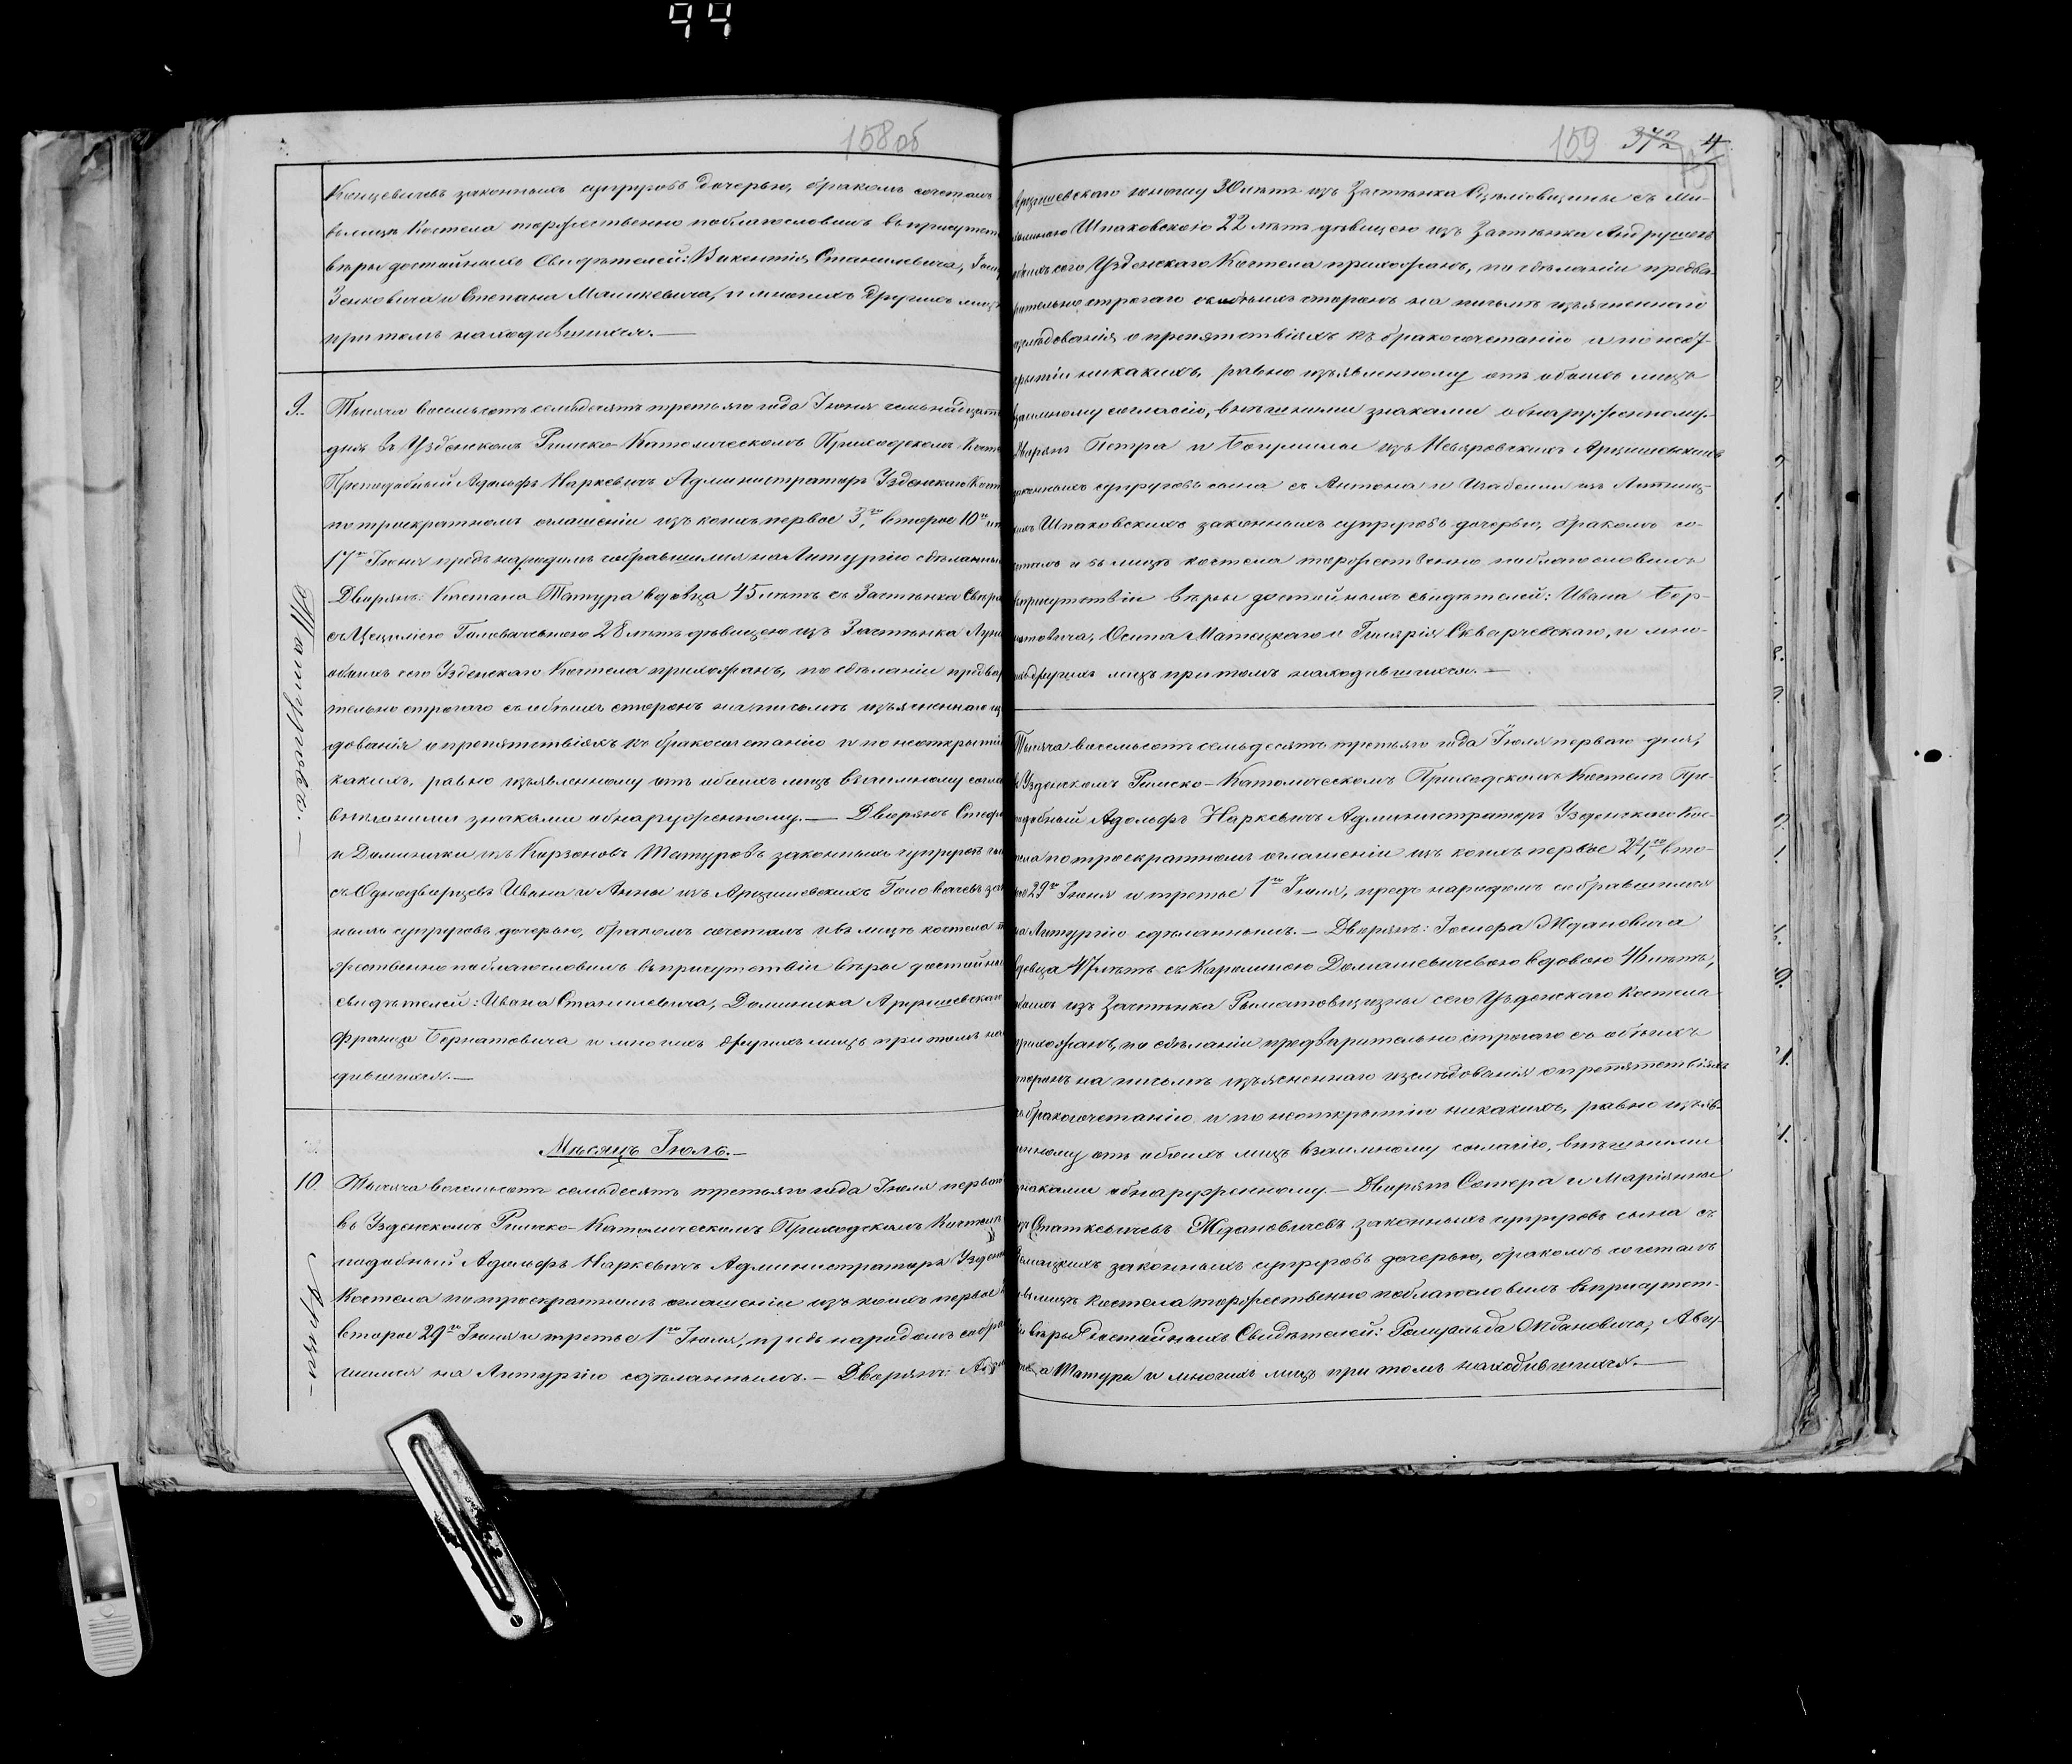 94
158об
Концевичевъ законныхъ супруговъ дочерью, бракомъ сочеталъ
въ лицѣ Костела торжественно поблагословилъ въ присутст
вѣры достойныхъ Свидѣтелей: Викентія Станилевича,
Зенковича и Степана Машкевича, и многихъ другихъ лицъ
при томъ находившихся.—
9.
Татура.—
Тысяча восемьсотъ семьдесятъ третьяго года Іюня семьнадцат
дня въ Узденскомъ Римско-Католическомъ Приходскомъ Косте
Преподобный Адольфъ Наркевичъ Администраторъ Узденскаго Кост
по троекратномъ оглашеніи изъ коихъ первое 3го, второе 10го
17го Іюня предъ народомъ собравшимся на Литургію сдѣланны
Дворянъ: Каетана Татура вдовца 45 лѣтъ съ Застѣнка
съ Цециліею Головачевною 28 лѣтъ дѣвицею изъ Застѣнка
обоихъ сего Узденскаго Костела прихожанъ, по сдѣланіи предвар
тельно строгаго съ обѣихъ сторонъ на письмѣ изъясненнаго из
дованія о препятствіяхъ къ бракосочетанію и по неоткрытіи
какихъ, равно изъявленному отъ обоихъ лицъ взаимному согла
внѣшними знаками обнаруженному.— Дворянъ Стеф
и Доминики изъ Корзоновъ Татуровъ законныхъ супруговъ
съ Однодворцевъ Ивана и Анны изъ Арцишевскихъ Головачевъ зак
ныхъ супруговъ дочерью, бракомъ сочеталъ и въ лицѣ костела т
жественно поблагословилъ въ присутствіи вѣры достойны
свидѣтелей: Ивана Станилевича, Доминика Арцишевскаго
Франца Бернатовича и многихъ другихъ лицъ при томъ на
дившихся.—
Мѣсяцъ Іюль.—
10.
Арци-
Тысяча восемьсотъ семьдесятъ третьяго года Іюля перваго
въ Узденскомъ Римско-Католическомъ Приходскомъ Костелѣ
подобный Адольфъ Наркевичъ Администраторъ Узденс
Костела по троекратномъ оглашеніи изъ коихъ первое
второе 29го Іюня и третье 1го Іюля, предъ народомъ собра
шимся на Литургію сдѣланнымъ.— Дворянъ:
159 372 4
Арцишевскаго юношу 30 лѣтъ изъ Застѣнка съ Ми-
Шпаковскою 22 лѣтъ дѣвицею изъ Застѣнка
обоихъ сего Узденскаго Костела прихожанъ, по сдѣланіи предва-
рительно строгаго съ обѣихъ сторонъ на письмѣ изъясненнаго
изслѣдованія о препятствіяхъ къ бракосочетанію и по неот-
крытіи никакихъ, равно изъявленному отъ обоихъ лицъ
взаимному согласію, внѣшними знаками обнаруженному.—
Дворянъ Петра и Богумилы изъ Невяровскихъ Арцишевскихъ
законныхъ супруговъ сына съ Антона и Изабелли изъ
Шпаковскихъ законныхъ супруговъ дочерью, бракомъ со-
четалъ и въ лицѣ костела торжественно поблагословилъ
въ присутствіи вѣры достойныхъ свидѣтелей: Ивана Бер-
натовича, Осипа Матецкаго и Гилярія Скварчевскаго, и мно-
гихъ другихъ лицъ при томъ находившихся.—
Тысяча восемьсотъ семьдесятъ третьяго года Іюля перваго дня,
въ Узденскомъ Римско-Католическомъ Приходскомъ Костелѣ Пре-
подобный Адольфъ Наркевичъ Администраторъ Узденскаго Кос-
тела по троекратномъ оглашеніи изъ коихъ первое 24го, вто-
рое 29го Іюня и третье 1го Іюля, предъ народомъ собравшимся
на Литургію сдѣланнымъ.— Дворянъ: Іосифа Ждановича
вдовца 47 лѣтъ съ Каролиною Домашевичевою вдовою 46 лѣтъ,
обоихъ изъ Застѣнка сего Узденскаго Костела
прихожанъ, по сдѣланіи предварительно строгаго съ обѣихъ
сторонъ на письмѣ изъясненнаго изслѣдованія о препятствіяхъ
къ бракосочетанію и по неоткрытіи никакихъ, равно изъяв-
ленному отъ обоихъ лицъ взаимному согласію, внѣшними
знаками обнаруженному.— Дворянъ Сотера и Маріянны
изъ Статкевичевъ Ждановичевъ законныхъ супруговъ сына съ
законныхъ супруговъ дочерью, бракомъ сочеталъ
и въ лицѣ Костела торжественно поблагословилъ въ присутст-
віи вѣры достойныхъ Свидѣтелей: Ромуальда Ждановича, Авгу-
Татуры и многихъ лицъ при томъ находившихся.—